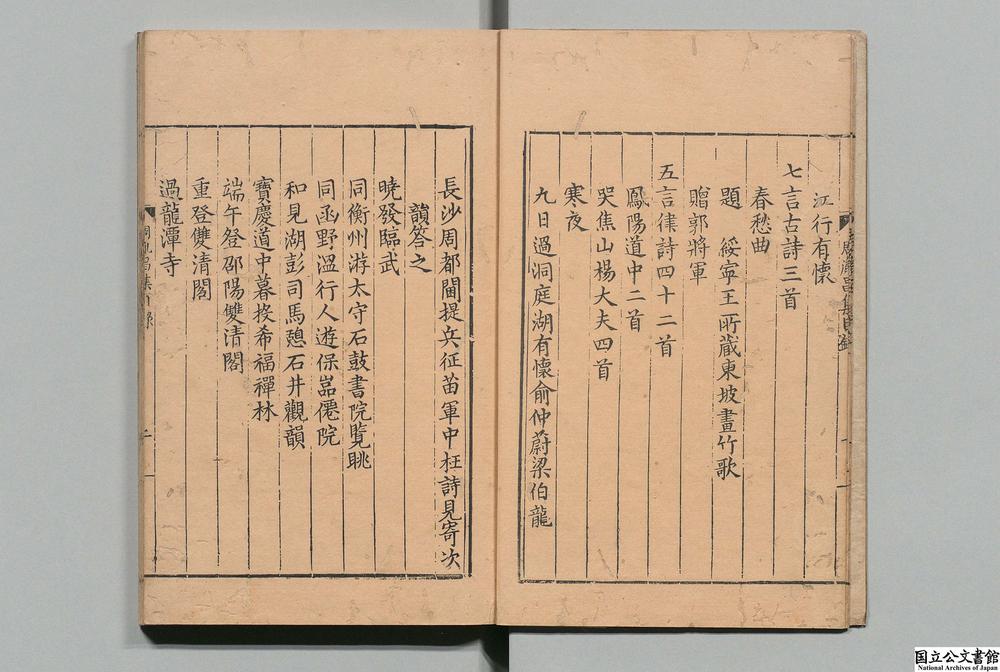 江行有懷
七言古詩三首
春愁曲
題　綏寧王所藏東坡畫竹歌
贈郭將軍
五言律詩四十二首
鳳陽道中二首
哭焦山楊大夫四首
寒夜
九日過洞庭湖有懷俞仲蔚梁伯龍
長沙周都閫提兵征苗軍中枉詩見寄次
韻答之
曉發臨武
同衡州游太守石鼓書院覽眺
同函野溫行人遊保嵓僊院
和見湖彭司馬憩石井觀韻
寶慶道中暮投希福禪林
端午登邵陽雙清閣
重登雙清閣
過龍潭寺
国立公文書館
National Archives of Japan